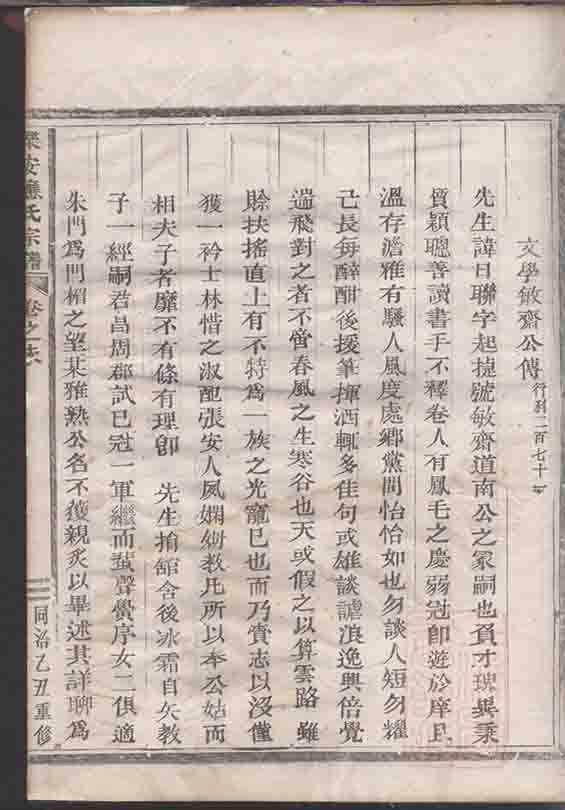 文學敏齋公傳行列二百七十
先生諱日聯字起捷號敏齋道南公之冢嗣也負才瑰異秉
質穎聰善讀書手不釋卷人有鳳毛之慶弱冠卽遊於庠且
溫存澹雅有騷人風度處鄉黨間怡怡如也勿談人短勿耀
己長每醉酣後援筆揮洒輒多佳句或雄談謔浪逸興倍覺
遄飛對之者不啻春風之生寒谷也天或假之以算雲路雖
賒扶搖直上有不特爲一族之光寵已也而乃賫志以沒僅
獲一衿士林惜之淑配張安人夙嫻姆敎凡所以奉公姑而
相夫子者靡不有條有理卽 先生捐舘舍後冰霜自矢敎
子一經嗣君昌周郡試已冠一軍繼而蜚聲黌序女二俱適
朱門爲門楣之望某雅熟公名不獲親炙以畢述其詳聊爲
安應氏宗譜
卷之
同治乙丑重修